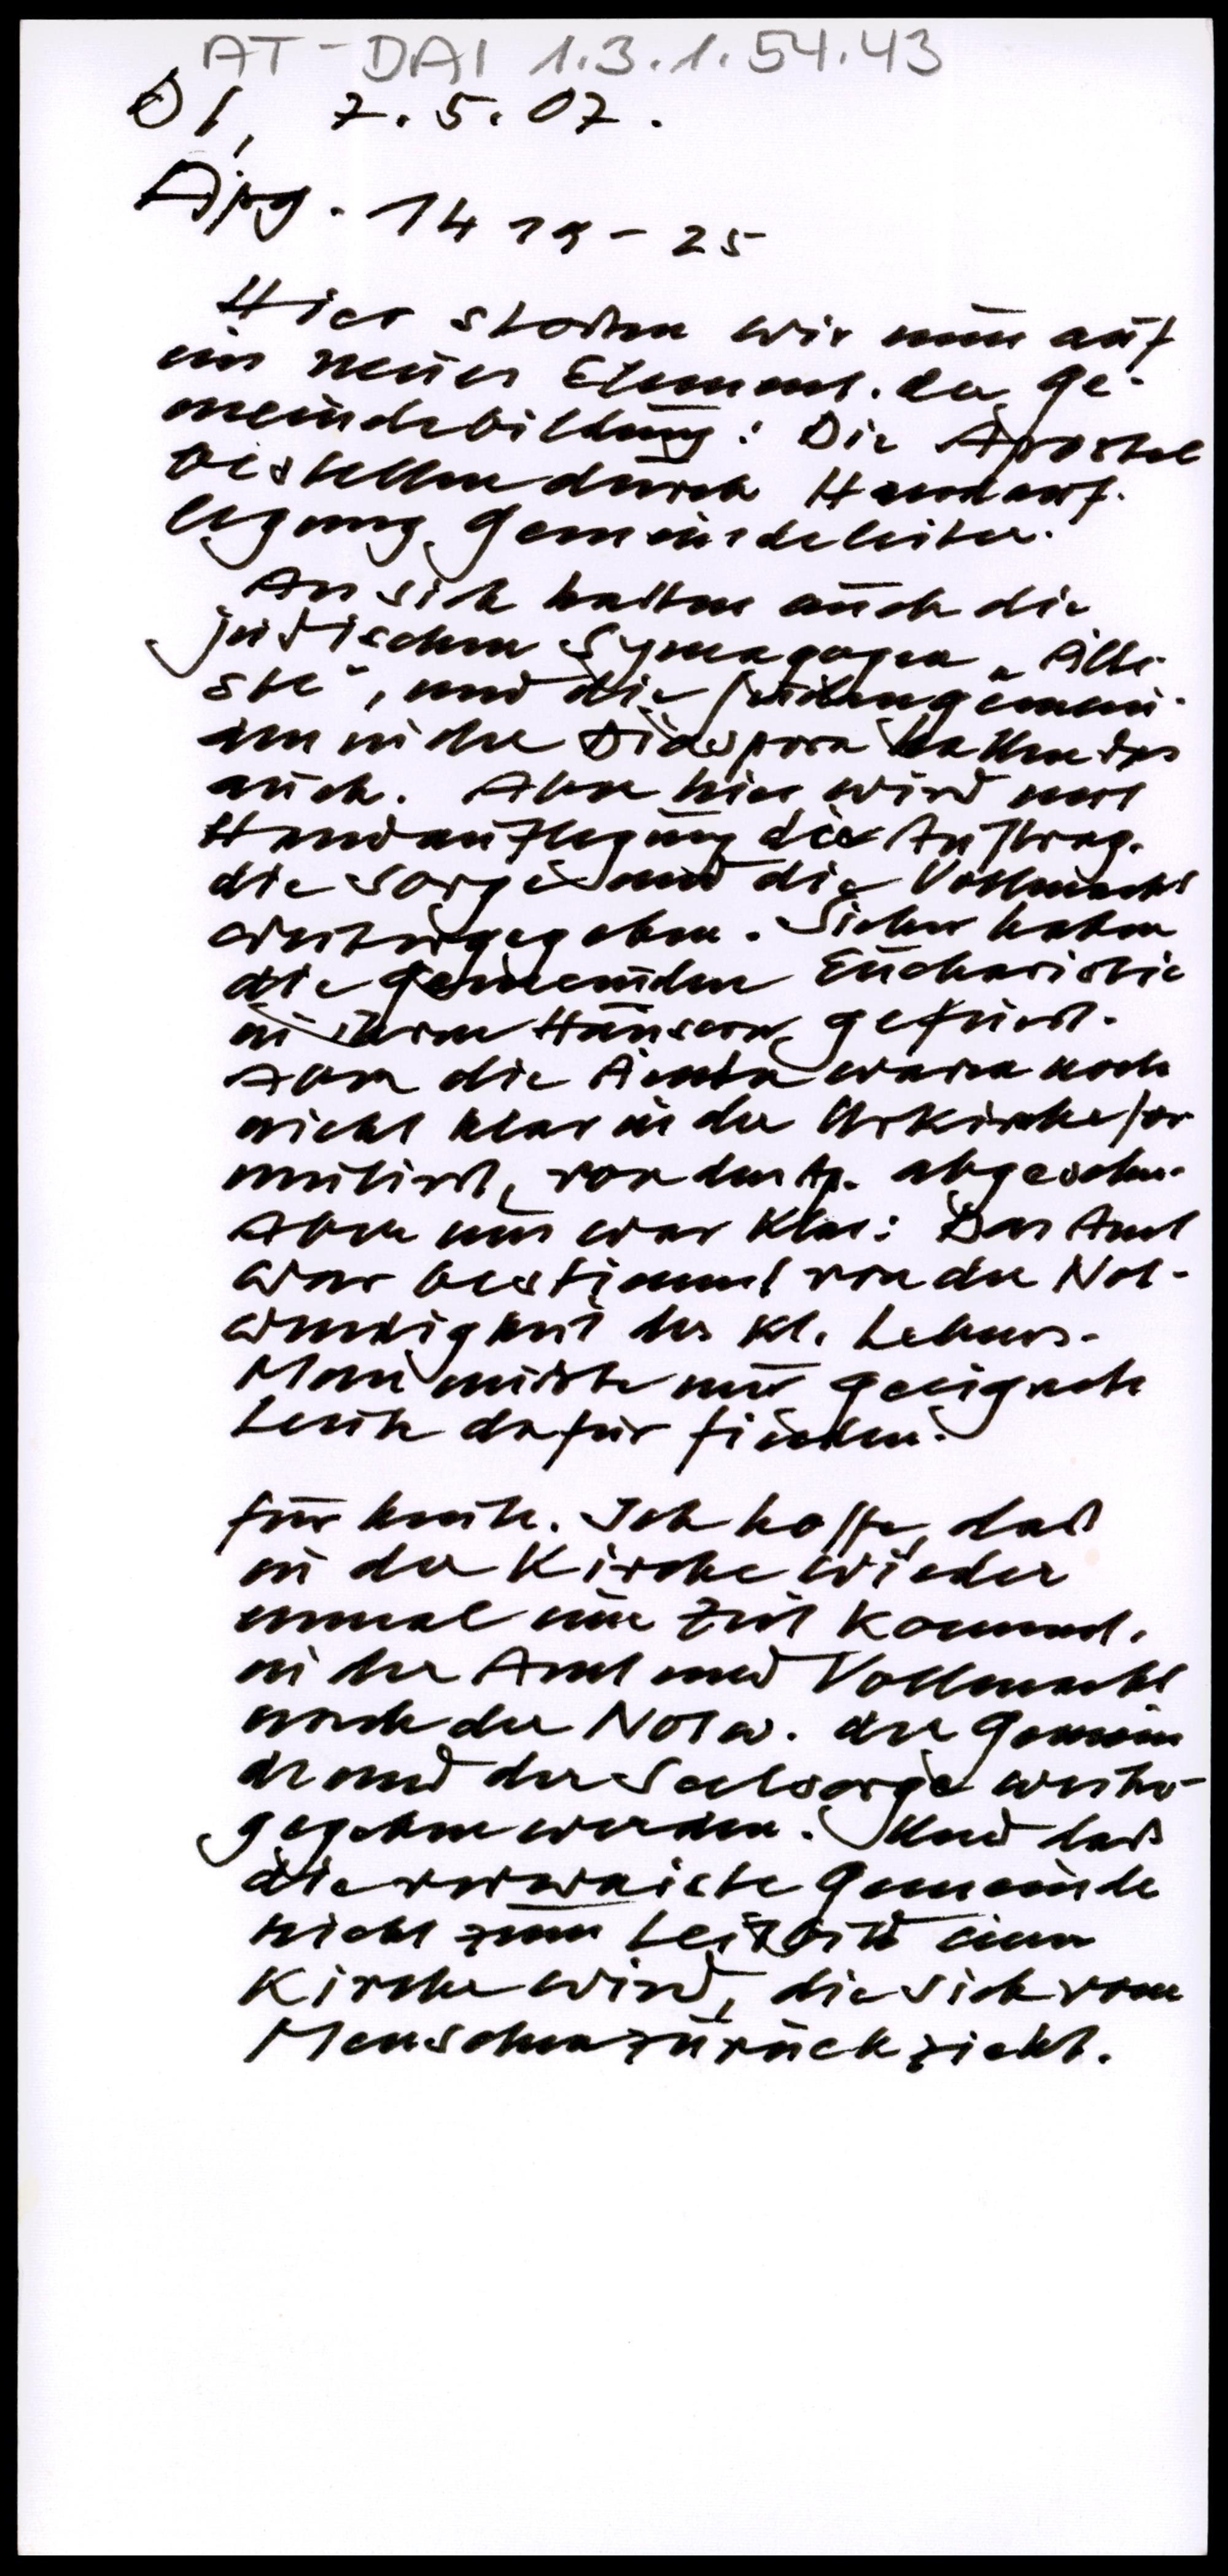 AT-DAI 1.3.1.54.43
DI, 7.5.07.
Apg. 14 19-25
Hier stoßen wir nun auf
ein neues Element der Ge-
meindebildung: Die Apostel
bestellen durch Handauf-
legung Gemeindeleiter.
An sich hatten auch die
jüdischen Synagogen „Älte-
ste", und die Judengemein-
den in der Diaspora hatten das
auch. Aber hier wird mit
Handauflegung der Auftrag,
die Sorge und die Vollmacht
weitergegeben. Sicher haben
die Gemeinden Eucharistie
in ihren Häusern gefeiert.
Aber die Ämter waren noch
nicht klar in der Urkirche for
muliert, von den Ap. abgesehen.
Aber nun war klar: Das Amt
war bestimmt von der Not-
wendigkeit des kl. Lebens.
Man mußte nur geeignete
Leute dafür finden.
für heute. Ich hoffe, daß
in der Kirche wieder
einmal eine Zeit kommt,
in der Amt und Vollmacht
nach der Notw. der Gemein
de und der Seelsorge weiter-
gegeben werden. Und daß
die verwaiste Gemeinde
nicht zum Leitbild einer
Kirche wird, die sich vom
Menschen zurückzieht.